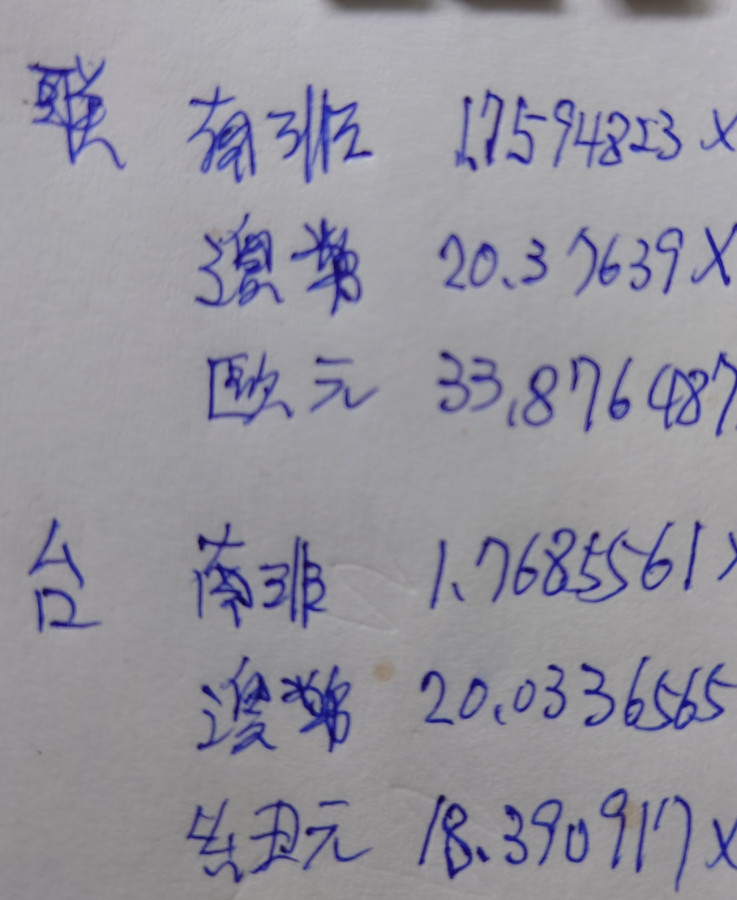 聯 南非 1.7594823 X
澳幣 20.37639 X
歐元 33.876487
台 南非 1.7685561 X
澳幣 20.0336565
紐元 18.390917 X